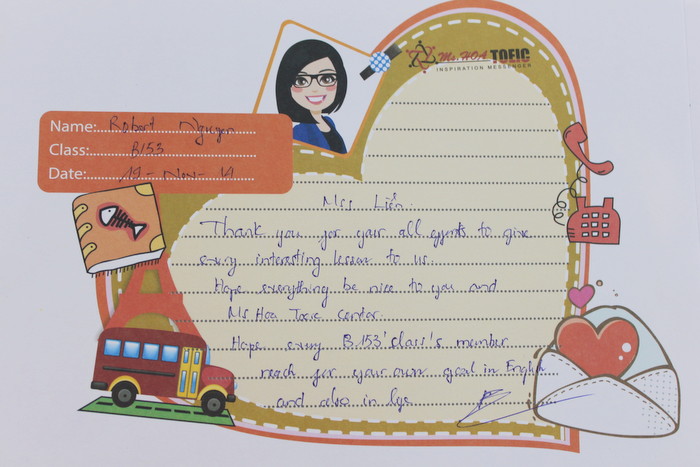 Ms. HOA TOEIC
INSPIRATION MESSENGER
Name: Robert Nguyen
Class: B153
Date: 11 - Nov - 14
Mss Liên.
Thank you for your all efforts to give
every interesting lesson to us.
Hope everything be nice to you and
Ms Hoa Toeic center.
Hope every B153'class's member
reach for your own goal in English
and also in